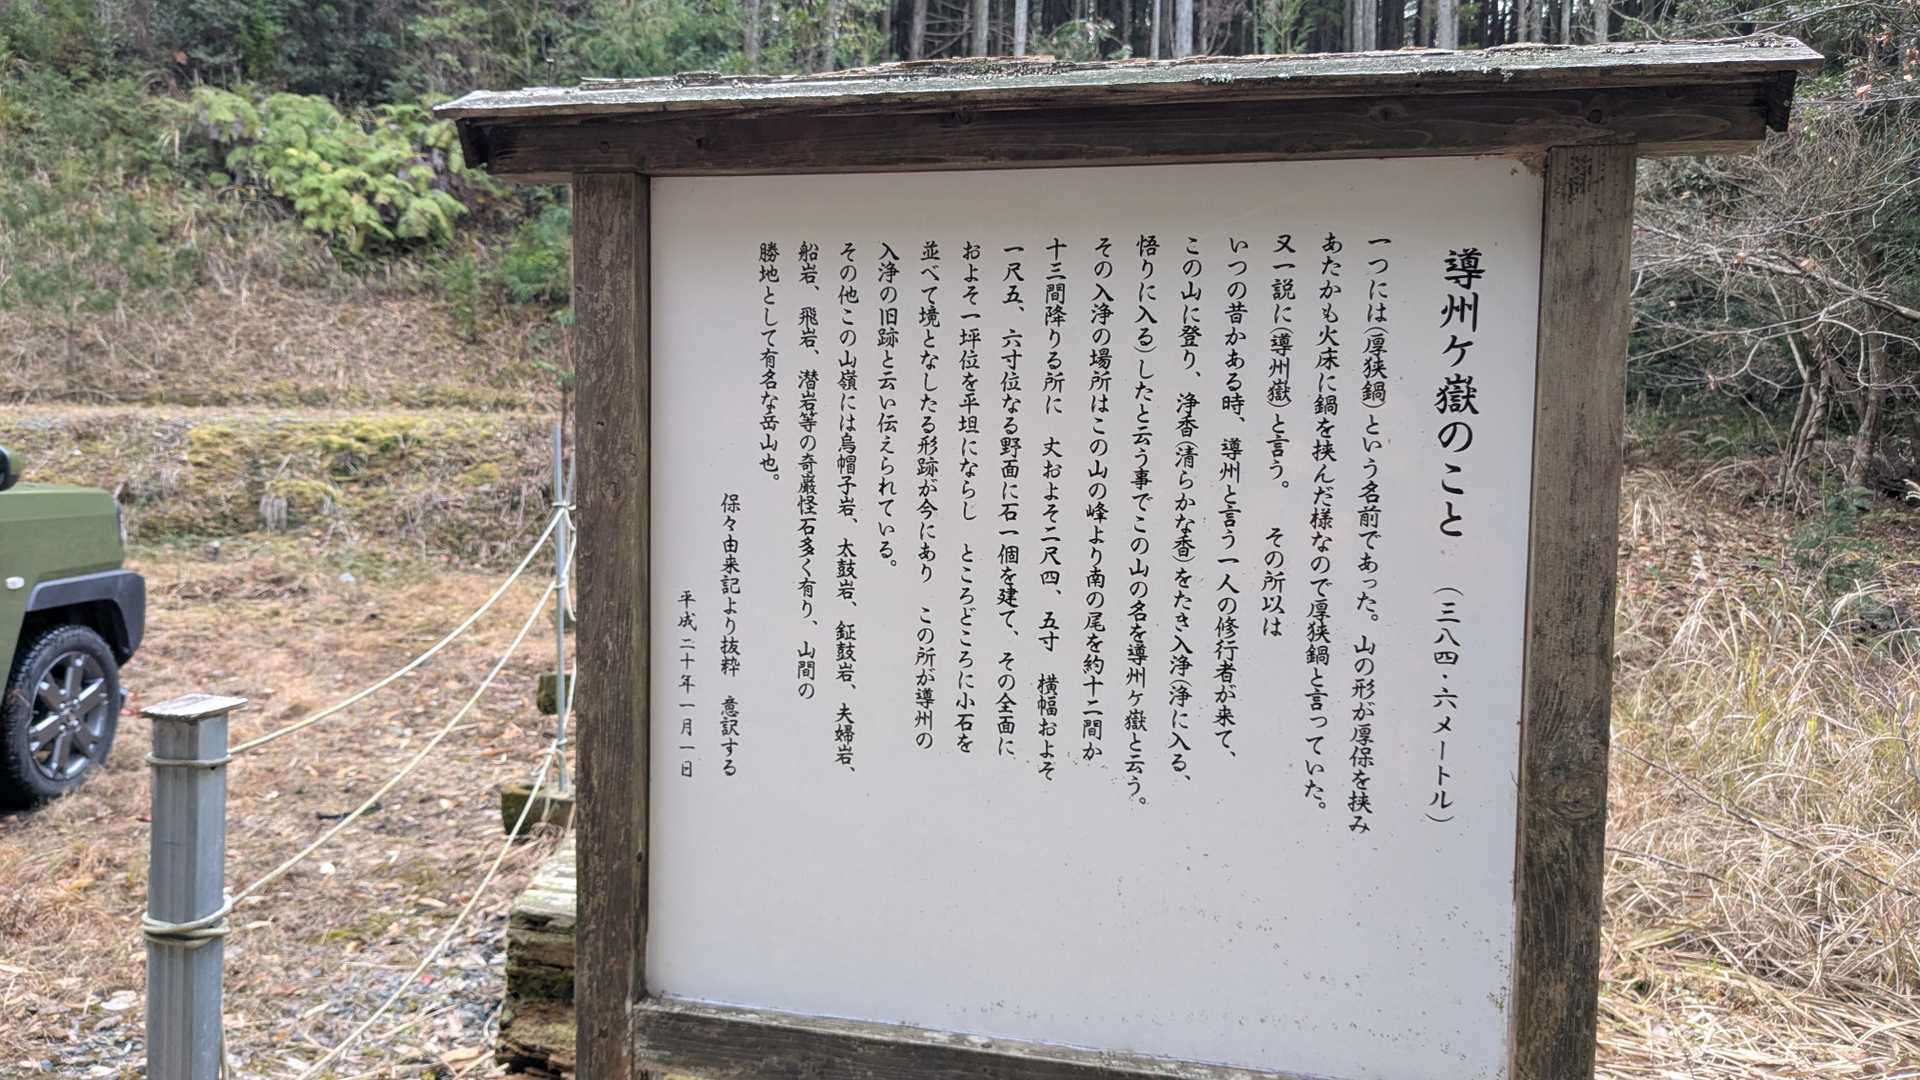 導州ヶ嶽のこと （三八四・六メートル）
一つには（厚狭鍋）という名前であった。山の形が厚保を挟み
あたかも火床に鍋を挟んだ様なので厚狭鍋と言っていた。
又一説に（導州嶽）と言う。 その所以は
いつの昔かある時、導州と言う一人の修行者が来て、
この山に登り、浄香（清らかな香）をたき入浄（浄に入る、
悟りに入る）したと云う事でこの山の名を導州ヶ嶽と云う。
その入浄の場所はこの山の峰より南の尾を約十二間か
十三間降りる所に 丈およそ二尺四、五寸 横幅およそ
一尺五、六寸位なる野面に石一個を建て、その全面に
およそ一坪位を平坦にならし ところどころに小石を
並べて境となしたる形跡が今にあり この所が導州の
入浄の旧跡と云い伝えられている。
その他この山嶺には烏帽子岩、太鼓岩、鉦鼓岩、夫婦岩、
船岩、飛岩、潜岩等の奇巌怪石多く有り、山間の
勝地として有名な岳山也。
保々由来記より抜粋 意訳する
平成二十年一月一日